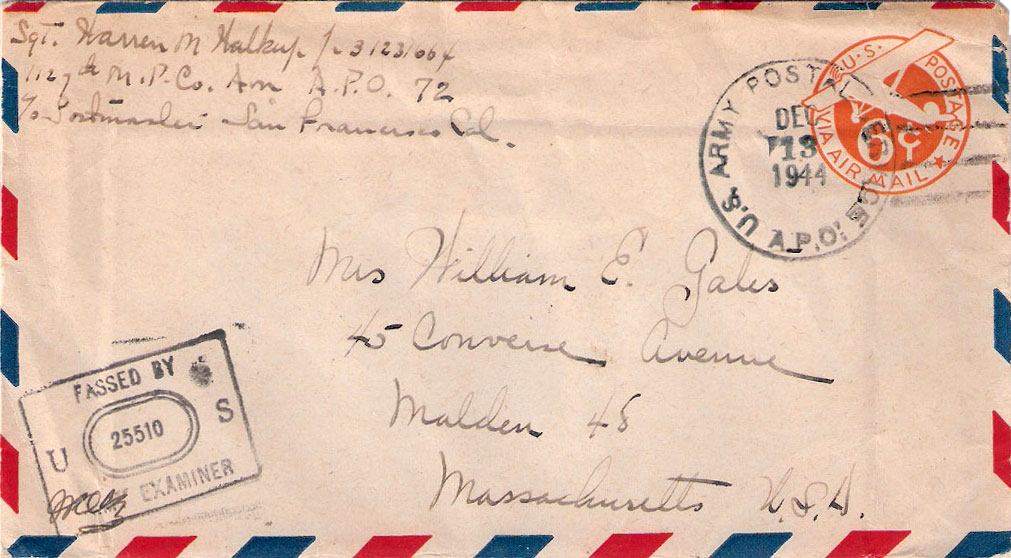 Sgt. Warren M Halkup Jr 31231664
1127th M.P. Co. Avn A.P.O. 72
c/o Postmaster San Francisco Cal.
U.S. ARMY POSTAL SERVICE
DEC
13
1944
A.P.O.
U.S. POSTAGE
6¢
VIA AIR MAIL
Mrs William E. Gales
45 Converse Avenue
Malden 48
Massachusetts U.S.A.
PASSED BY
U 25510 S
EXAMINER